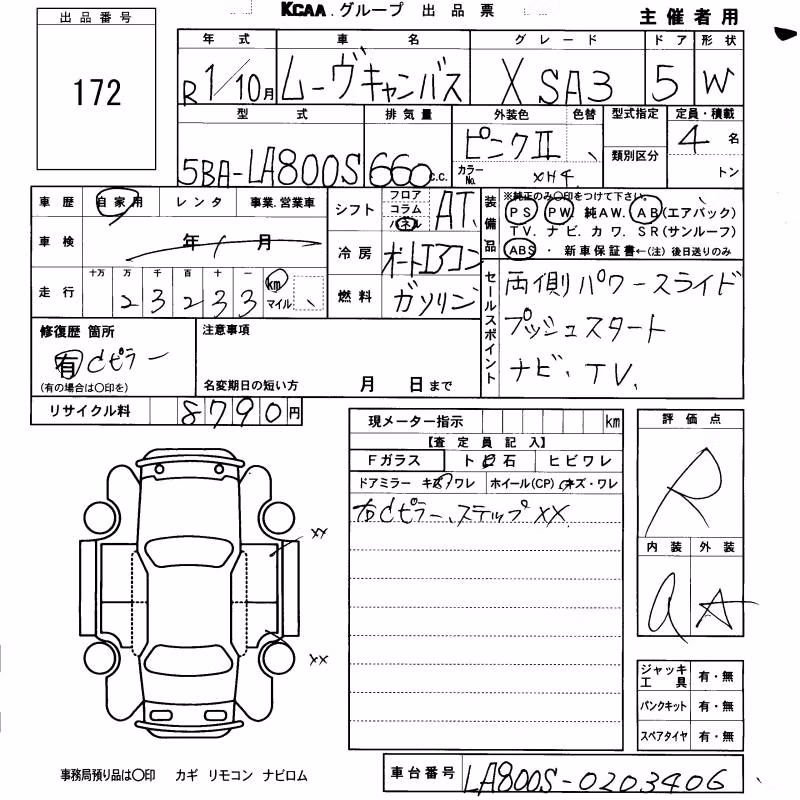 KCAA.グループ 出品票
主催者用
出品番号
172
年式 車名 グレード ドア 形状
R1/10月 ムーヴキャンバス X SA3 5 W
型式 排気量 外装色 色替 型式指定 定員・積載
5BA-LA800S 660c.c. ピンクII 、 類別区分 4名
カラーNo. XH4 トン
車歴 自家用 レンタ 事業.営業車
シフト フロア コラム パネル AT
装備品 ※純正のみ○印をつけて下さい。
PS PW 純AW. AB(エアバッグ)
TV. ナビ. カワ. SR(サンルーフ)
ABS ・ 新車保証書←(注) 後日送りのみ
車検 年 月
冷房 オートエアコン
走行 十万 万 千 百 十 一
23233 km マイル 、
燃料 ガソリン
セールスポイント
両側パワースライド
プッシュスタート
ナビ、TV、
修復歴 箇所
有 Cピラー
(有の場合は○印を)
注意事項
名変期日の短い方 月 日まで
リサイクル料 8790円
現メーター指示 km
【査定員記入】
Fガラス ト 石 ヒビワレ
ドアミラー キズ ワレ ホイール(CP) キズ・ワレ
右Cピラー、ステップXX
XX
XX
評価点
R
内装 外装
a A
ジャッキ工具 有・無
パンクキット 有・無
スペアタイヤ 有・無
事務局預り品は○印 カギ リモコン ナビロム
車台番号 LA800S-0203406